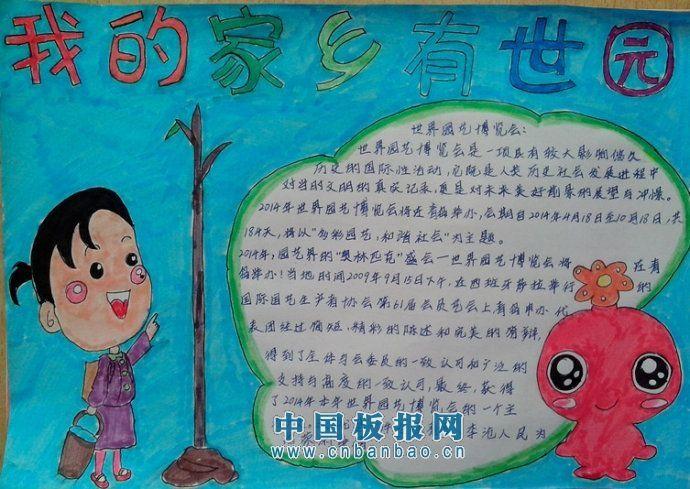 我的家乡有世园
世界园艺博览会:
世界园艺博览会是一项具有较大影响悠久
历史的国际性活动,它既是人类历史社会发展进程中
对当的文明的真实记录,更是对未来美好前景的展望与冲操。
2014年世界园艺博览会将近青岛举办,会期自2014年4月18日至10月18日,共
184天,将以"为彩园艺,和谐社会"为主题。
2014年,园艺界的"奥林匹克"盛会一世界园艺博览会将在青
岛举办!当地时间2009年9月15日下午,在西班牙萨拉举行的
国际园艺生产者协会第61届会员会上青岛申办代
表团经过简短、精彩的陈述和完美的
得到了全体与会委员的一致认可和广泛的
支持与高度的一致认可,最终,获得
了2014年本年世界园艺博览会的一个主
李沧人民为
中国板报网
www.cnbanbao.cn